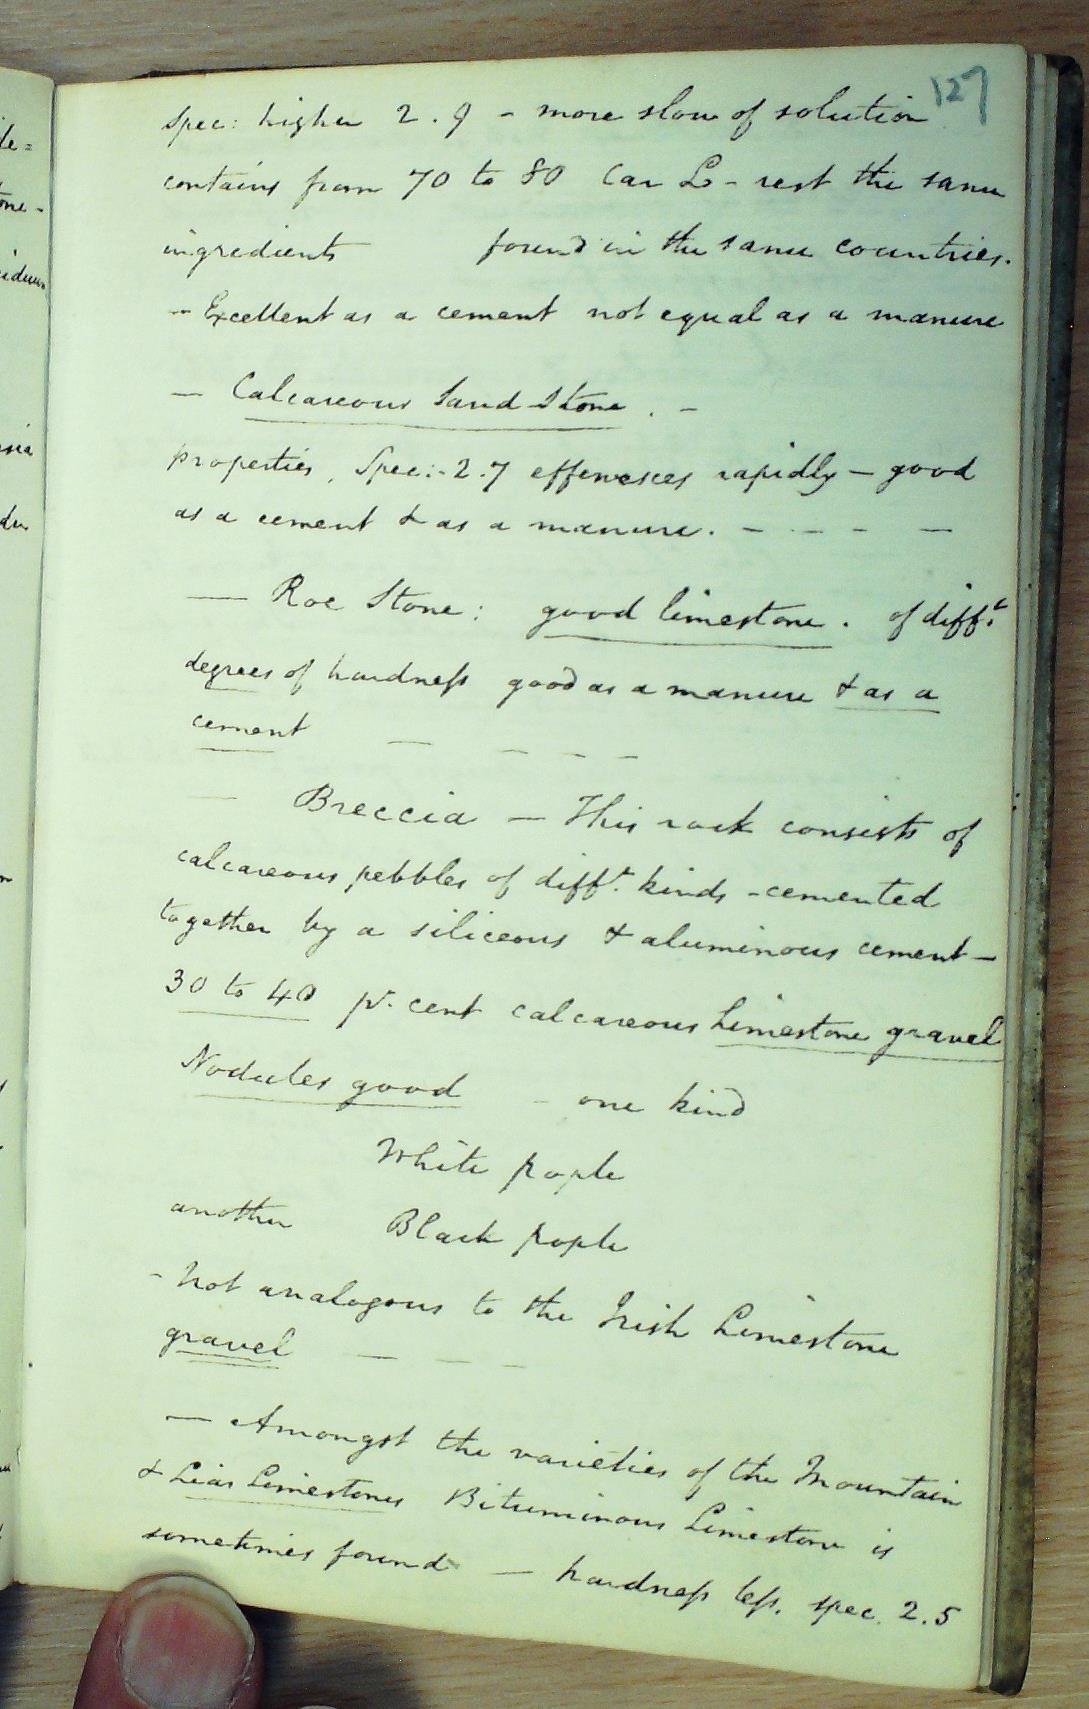 127
spec: higher 2.9 - more slow of solution
contains from 70 to 80 Car L - rest the same
ingredients found in the same countries.
- Excellent as a cement not equal as a manure
- Calcareous Sand Stone. -
properties, Spec:- 2.7 effervesces rapidly - good
as a cement & as a manure. - - - - -
- Roe Stone: good limestone. of difft.
degrees of hardness good as a manure & as a
cement - - - - -
- Breccia - This rock consists of
calcareous pebbles of difft. kinds - cemented
together by a siliceous & aluminous cement -
30 to 40 pr. cent calcareous Limestone gravel
Nodules good - one kind
White pople
another Black pople
- not analogous to the Irish Limestone
gravel - - -
- Amongst the varieties of the Mountain
& Lias Limestones Bituminous Limestone is
sometimes found - hardness less. spec. 2.5